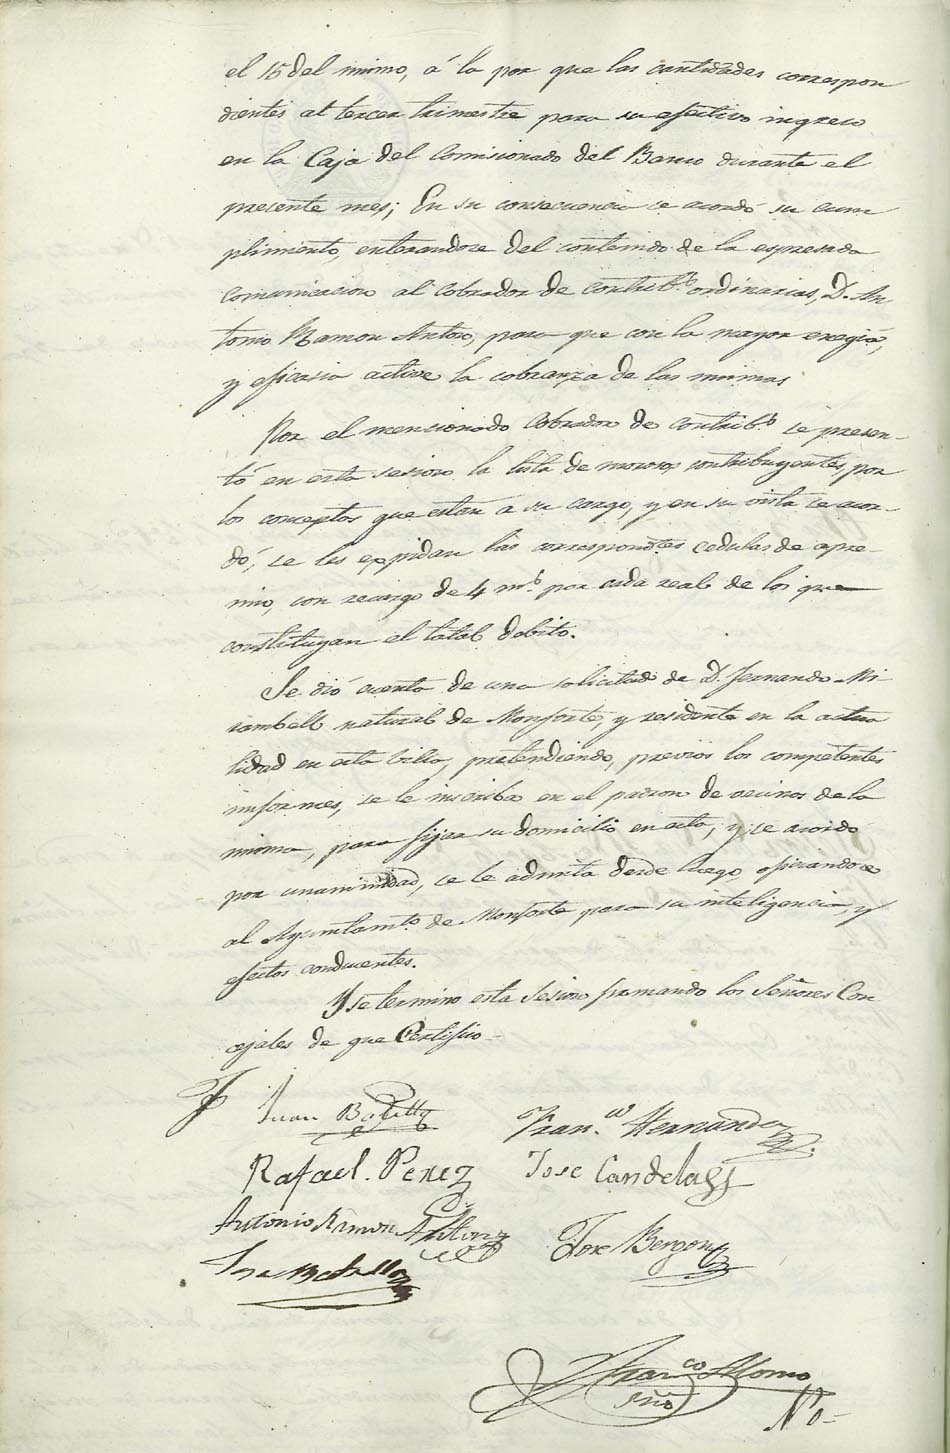 el 15 del mismo, á la por que las cantidades correspon
dientes al tercer trimestre para su efectivo ingreso
en la Caja del Comisionado del Banco durante el
presente mes; En su consecuencia se acordó su cum
plimiento, enterandose del contenido de la espresada
comunicacion al cobrador de contrib.s ordinarias, D. An
tonio Ramon Anton, para que con la mayor
y eficasia active la cobranza de las mismas
Por el mencionado Cobrador de contrib.s se presen-
tó en esta sesion la lista de morosos contribuyentes, por
los conceptos que estan a su cargo, y en su vista se acor-
dó, se les expidan las correspond.tes cedulas de apre-
mio, con recargo de 4 m.s por cada real de los que
constituyan el total debito.
Se dió cuenta de una solicitud de D. Fernando Mi
rambell natural de Monforte, y residente en la actua
lidad en esta villa, pretendiendo, previos los competentes
informes, se le inscriba en el padron de vecinos de la
misma, para fijar su domicilio en esta, y se acordó
por unanimidad, se le admita desde luego, oficiandose
al Ayuntam.to de Monforte para su inteligencia, y
efectos conducentes.
Y se termino esta Sesion firmando los Señores Con
cejales de que Certifico
Juan Botella Fran.co Hernandez
Rafael Perez Jose Candela
Antonio Ramon Anton Jose Bergon
Jose Botella
Fran.co Alonso
Srio